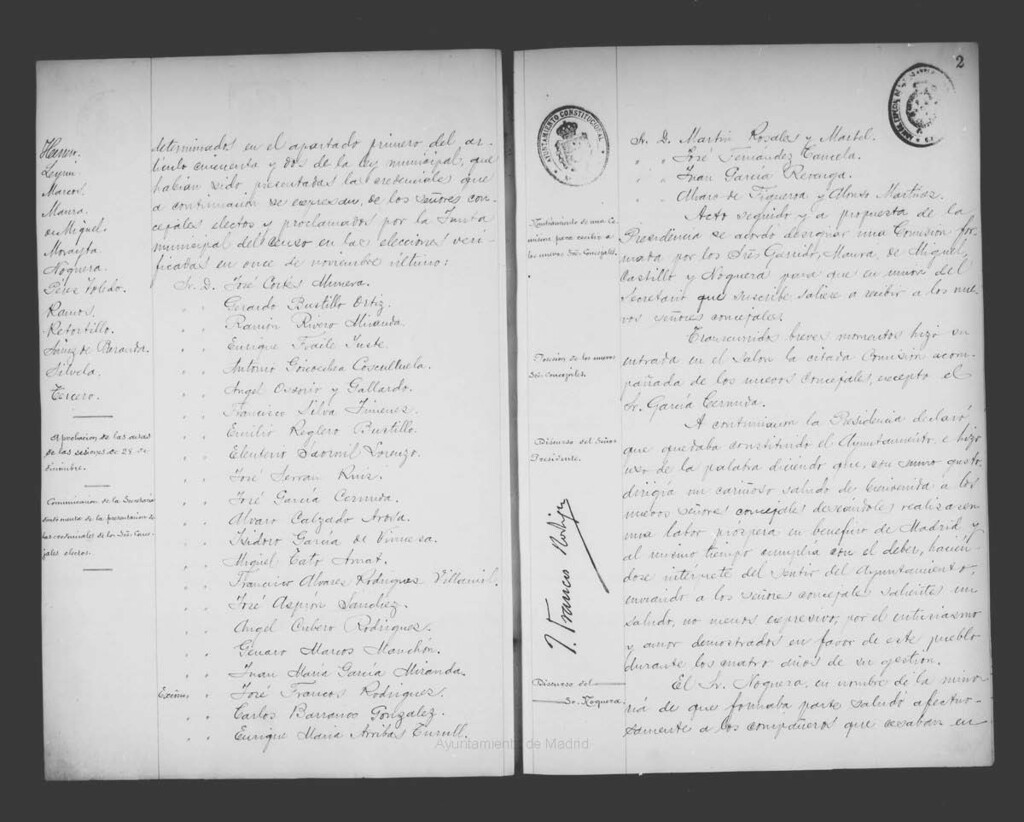 Leyni
Marcos
Maura.
de Miguel.
Morayta
Noguera.
Pérez Toledo.
Ramos.
Retortillo.
Sainz de Baranda.
Silvela.
Tercero.
Aprobación de las actas
de las sesiones de 28 de
diciembre.
Comunicación de la Secretaría
dando cuenta de la presentacion de
las credenciales de los Sres. Conce-
jales electos.
determinados en el apartado primero del ar-
tículo cincuenta y dos de la ley municipal, que
habían sido presentadas las credenciales que
a continuación se expresan, de los señores con-
cejales electos y proclamados por la Junta
municipal del Censo en las elecciones veri-
ficadas en once de noviembre último:
Sr. D. José Cortés Munera.
" " Gerardo Bustillo Ortiz.
" " Ramón Rivero Miranda
" " Enrique Fraile Yuste.
" " Antonio Goicoechea Coscultuela.
" " Angel Ossorio y Gallardo.
" " Francisco Silva Jimenez.
" " Emilio Reglero Bustillo.
" " Eleuterio Saornil Lorenzo.
" " José Serran Ruiz.
" " José García Cernuda.
" " Alvaro Calzado Arosa.
" " Isidoro García de Vinuesa.
" " Miguel Tato Amat.
" " Francisco Alvarez Rodríguez Villamil.
" " José Asprón Sanchez.
" " Angel Cubero Rodríguez.
" " Genaro Marcos Manchón.
" " Juan María García Miranda.
Excmo. " " José Francos Rodríguez.
" " Carlos Barranco Gonzalez.
" " Enrique María Arribas Turull.
2
AYUNTAMIENTO CONSTITUCIONAL
Sr. D. Martín Rosales y Martel.
" " José Fernández Cancela.
" " Juan García Revenga.
" " Alvaro de Figueroa y Alonso Martínez.
Nombramiento de una Co-
misión para recibir a
los nuevos Sres. Concejales.
Acto seguido y a propuesta de la
Presidencia se acordó designar una Comisión for-
mada por los Sres Garrido, Maura, de Miguel,
Castillo y Noguera para que en unión del
Secretario que suscribe saliese a recibir a los nue-
vos señores concejales.
Posesión de los nuevos
Sres. Concejales.
Transcurridos breves momentos hizo su
entrada en el Salón la citada Comisión acom-
pañada de los nuevos Concejales, excepto el
Sr. García Cernuda.
Discurso del Señor
Presidente.
A continuación la Presidencia declaró
que quedaba constituido el Ayuntamiento, e hizo
uso de la palabra diciendo que, con sumo gusto,
dirigía un cariñoso saludo de bienvenida a los
nuevos señores concejales deseándoles realizasen
una labor próspera en beneficio de Madrid y
al mismo tiempo cumplía con el deber, hacién-
dose intérprete del sentir del Ayuntamiento,
enviando a los señores concejales salientes un
saludo, no menos expresivo, por el entusiasmo
y amor demostrados en favor de este pueblo
durante los cuatro años de su gestión.
J. Francos Rodríguez
Discurso del
Sr. Noguera.
El Sr. Noguera, en nombre de la mino-
ría de que formaba parte saludó afectuo-
samente a los compañeros que cesaban en
Ayuntamiento de Madrid